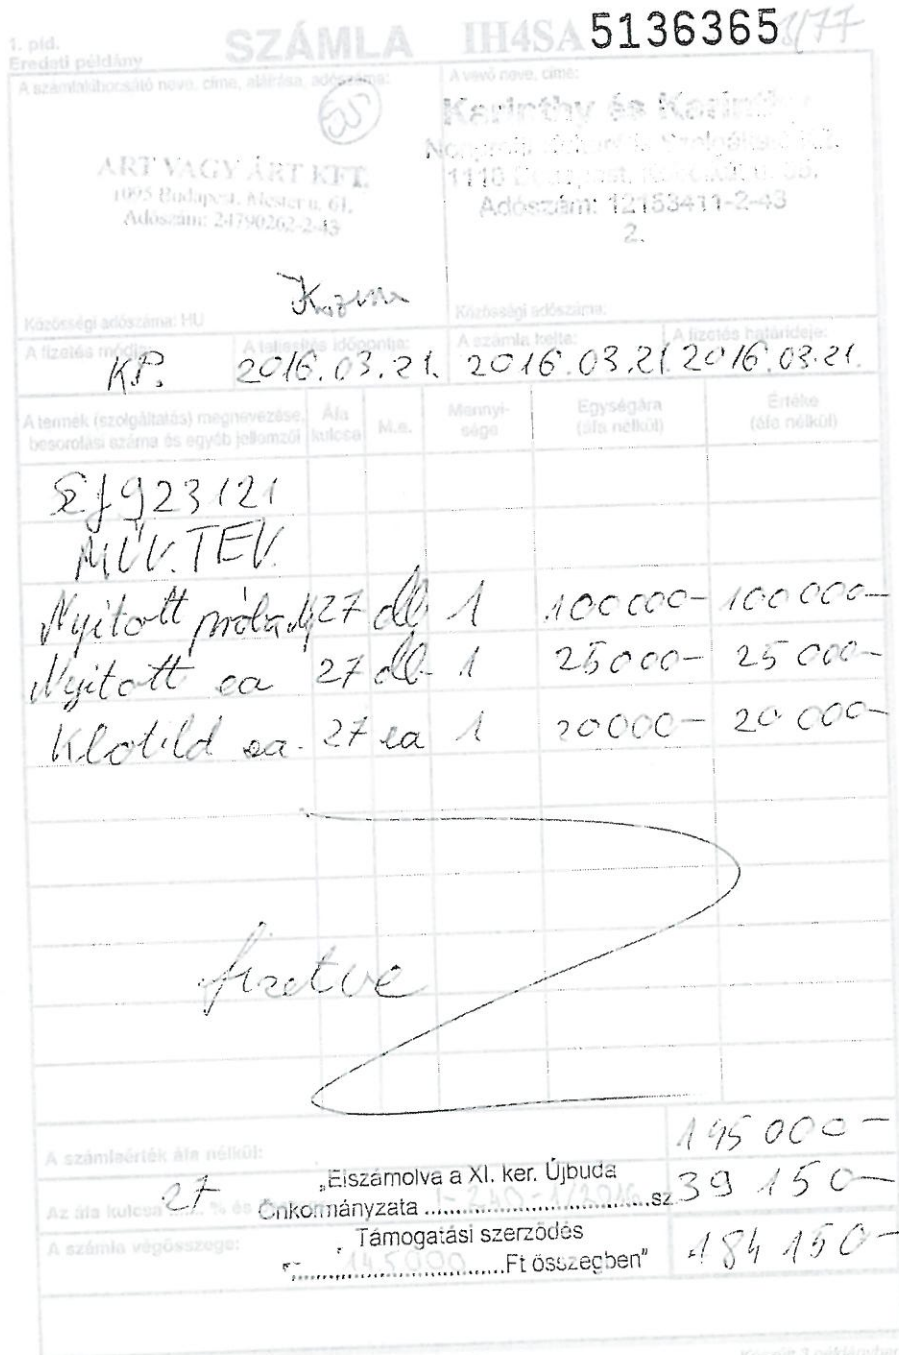 1. pld.
Eredeti példány
SZÁMLA IH4SA 5136365
A számlakibocsátó neve, címe, aláírása, adószáma:
ART VAGY ÁRT KFT.
1095 Budapest, Mester u. 61.
Adószám: 24790262-2-43
Közösségi adószáma: HU
A vevő neve, címe:
Karinthy és Karinthy
1110 Budapest,
Adószám: 12153411-2-43
2.
Közösségi adószáma:
A fizetés módja: A teljesítés időpontja: A számla kelte: A fizetés határideje:
KP. 2016.03.21. 2016.03.21. 2016.03.21.
A termék (szolgáltatás) megnevezése, besorolási száma és egyéb jellemzői Áfa kulcsa M.e. Mennyi-sége Egységára (áfa nélkül) Értéke (áfa nélkül)
923121
MŰV. TEV.
Nyitott próba 27 db 1 100 000- 100 000-
Nyitott ea 27 db 1 25 000- 25 000-
Klotild ea. 27 ea 1 20 000- 20 000-
fizetve
A számlaérték áfa nélkül: 145 000-
Az áfa kulcsa 27 % és 39 150-
A számla végösszege: 184 150-
„Elszámolva a XI. ker. Újbuda
Önkormányzata 1-240-1/2016 sz.
Támogatási szerződés
145.000 Ft összegben"